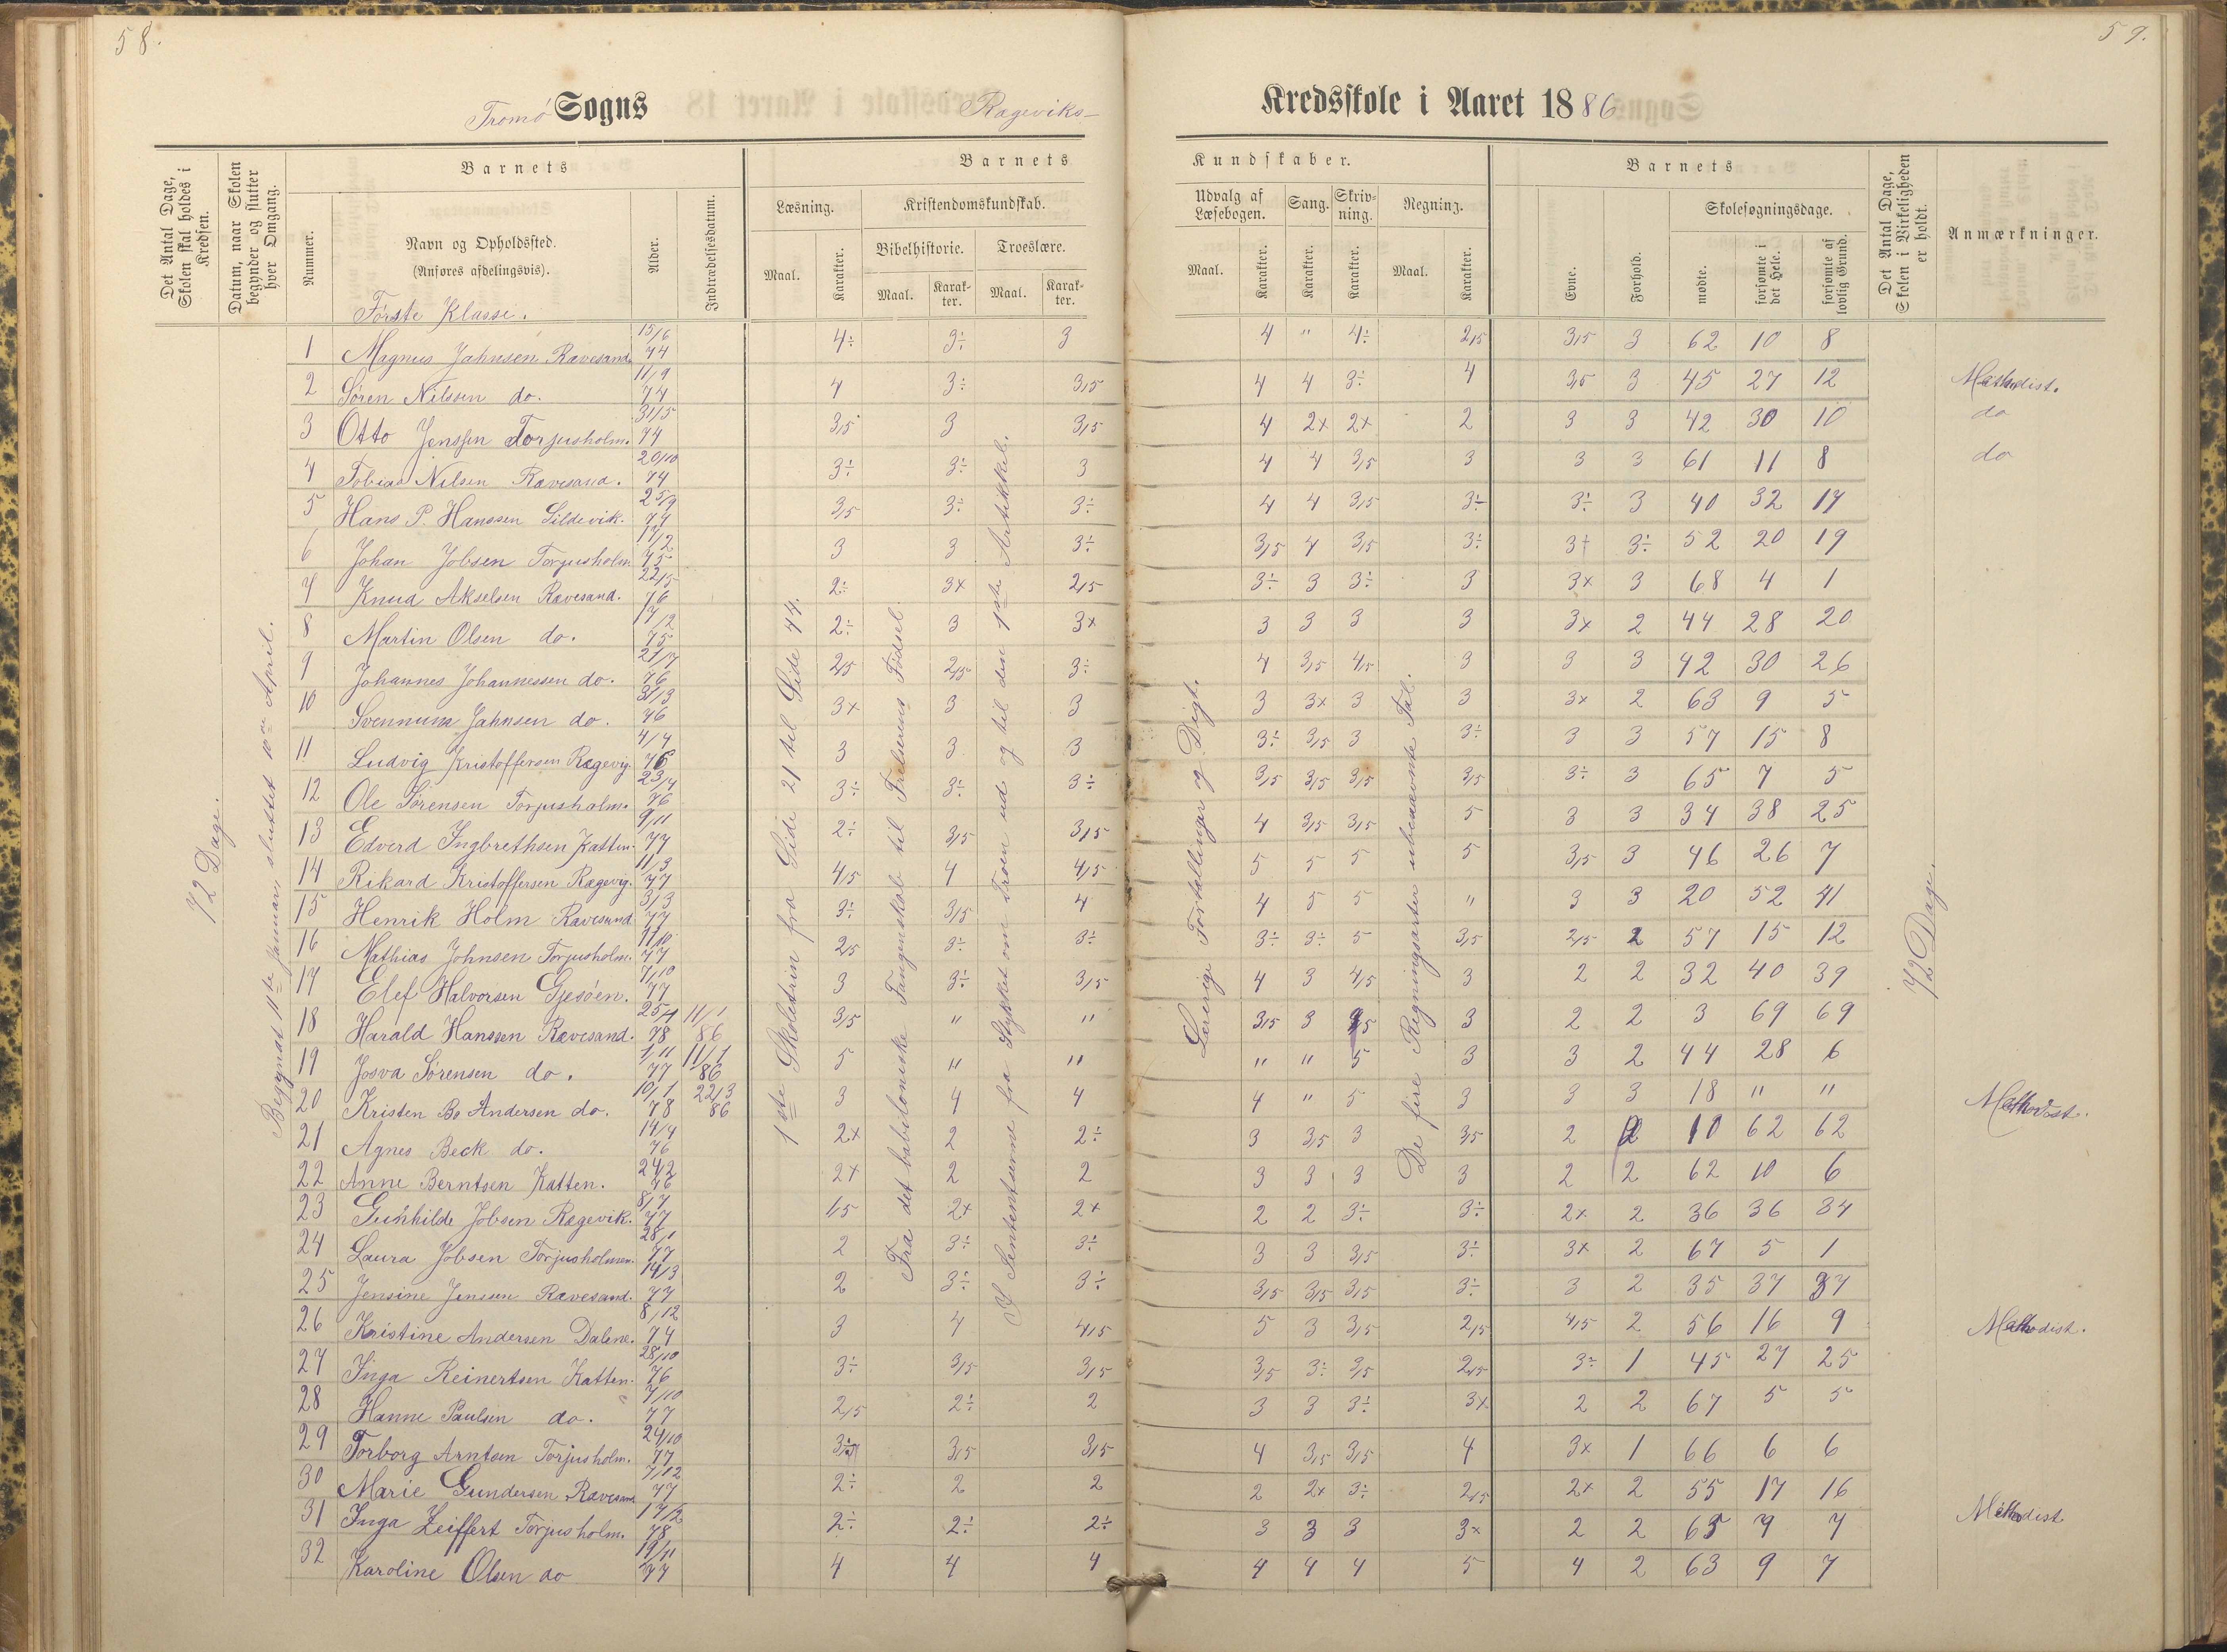 58.
59.
Tromö Sogns Rageviks-
Kredsskole i Aaret 1886
Det Antal Dage, Skolen skal holdes i Kredsen.
Datum, naar Skolen begynder og slutter hver Omgang.
Barnets
Nummer.
Navn og Opholdssted.
(Anføres afdelingsvis).
Alder.
Indtrædelsesdatum.
Barnets
Læsning.
Maal.
Karakter.
Kristendomskundskab.
Bibelhistorie.
Maal.
Karakter.
Troeslære.
Maal.
Karakter.
Kundskaber.
Udvalg af Læsebogen.
Maal.
Karakter.
Sang.
Karakter.
Skrivning.
Karakter.
Regning.
Maal.
Karakter.
Barnets
Evne.
Forhold.
Skolesøgningsdage.
mødte.
forsømte i det Hele.
forsømte af lovlig Grund.
Det Antal Dage, Skolen i Virkeligheden er holdt.
Anmærkninger.
Förste Klasse.
72 Dage.
Begyndt 11te Januar, sluttet 10de April.
1ste Skoletrin fra Side 21 til Side 44.
Fra det babiloniske Fangenskab til Frelserens Födsel.
Lærerige Fortællinger og Digt.
De fire Regningsarter ubenævnte Tal.
72 Dage.
1 Magnus Jahnsen Ravesand. 15/6 74 4÷ 3÷ 3 4 " 4÷ 2,5 3,5 3 62 10 8
2 Sören Nilssen do. 11/9 74 4 3÷ 3,5 4 4 3÷ 4 3,5 3 45 27 12 Methodist.
3 Otto Jenssen Torjusholm. 31/5 74 3,5 3 3,5 4 2x 2x 2 3 3 42 30 10 do
4 Tobias Nilsen Ravesand. 20/10 74 3÷ 3÷ 3 4 4 3,5 3 3 3 61 11 8 do
5 Hans P. Hanssen Sildevik. 25/9 74 3,5 3÷ 3÷ 4 4 3,5 3÷ 3÷ 3 40 32 17
6 Johan Jobsen Torjusholm 17/2 75 3 3 3÷ 3,5 4 3,5 3÷ 3+ 3÷ 52 20 19
7 Knud Akselsen Ravesand. 22/5 76 2÷ 3x 2,5 3÷ 3 3÷ 3 3x 3 68 4 1
8 Martin Olsen do. 17/2 75 2÷ 3 3x 3 3 3 3 3x 2 44 28 20
9 Johannes Johannessen do. 21/7 76 2,5 2,5 3÷ 4 3,5 4,5 3 3 3 42 30 26
10 Svennum Jahnsen do. 31/3 76 3x 3 3 3 3x 3 3 3x 2 63 9 5
11 Ludvig Kristoffersen Ragevig. 4/4 76 3 3 3 3÷ 3,5 3 3÷ 3 3 57 15 8
12 Ole Sörensen Torjusholm. 23/4 76 3÷ 3÷ 3÷ 3,5 3,5 3,5 3,5 3÷ 3 65 7 5
13 Edverd Ingbrethsen Katten. 9/11 77 2÷ 3,5 3,5 4 3,5 3,5 5 3 3 34 38 25
14 Rikard Kristoffersen Ragevig. 11/3 77 4,5 4 4,5 5 5 5 5 3,5 3 46 26 7
15 Henrik Holm Ravesand 3/3 77 3÷ 3,5 4 4 5 5 " 3 3 20 52 41
16 Mathias Johnsen Torjusholm. 11/10 77 2,5 3÷ 3÷ 3÷ 3÷ 5 3,5 2,5 2 57 15 12
17 Elef Halvorsen Gjesöen. 7/10 77 3 3÷ 3,5 4 3 4,5 3 2 2 32 40 39
18 Harald Hanssen Ravesand. 25/4 78 11/1 86 3,5 " " 3,5 3 4,5 3 2 2 3 69 69
19 Josva Sörensen do. 1/11 77 11/1 86 5 " " " " 5 3 3 2 44 28 6
20 Kristen Bo Andersen do. 10/1 78 22/3 86 3 4 4 4 " 5 3 3 3 18 " " Methodist.
21 Agnes Beck do. 14/4 76 2x 2 2÷ 3 3,5 3 3,5 2 2 10 62 62
22 Anne Berntsen Katten. 24/2 76 2x 2 2 3 3 3 3 2 2 62 10 6
23 Gunhilde Jobsen Ragevik. 8/7 77 1,5 2x 2x 2 2 3÷ 3÷ 2x 2 36 36 34
24 Laura Jobsen Torjusholmen. 28/1 77 2 3÷ 3÷ 3 3 3,5 3÷ 3x 2 67 5 1
25 Jensine Jensen Ravesand. 14/3 77 2 3÷ 3÷ 3,5 3,5 3,5 3÷ 3 2 35 37 37
26 Kristine Andersen Dalene. 8/12 74 3 4 4,5 5 3 3,5 2,5 4,5 2 56 16 9 Methodist.
27 Inga Reinertsen Katten. 28/10 76 3÷ 3,5 3,5 3,5 3÷ 3,5 2,5 3÷ 1 45 27 25
28 Hanne Paulsen do. 7/10 77 2,5 2÷ 2 3 3 3÷ 3x 2 2 67 5 5
29 Torborg Arntsen Torjusholm. 24/10 77 3÷ 3,5 3,5 4 3,5 3,5 4 3x 1 66 6 6
30 Marie Gundersen Ravesand 7/12 77 2÷ 2 2 2 2x 3÷ 2,5 2x 2 55 17 16
31 Inga Zeiffert Torjusholm. 17/2 78 2÷ 2÷ 2÷ 3 3 3 3x 2 2 65 7 7 Methodist
32 Karoline Olsen do 19/11 77 4 4 4 4 4 4 5 4 2 63 9 7